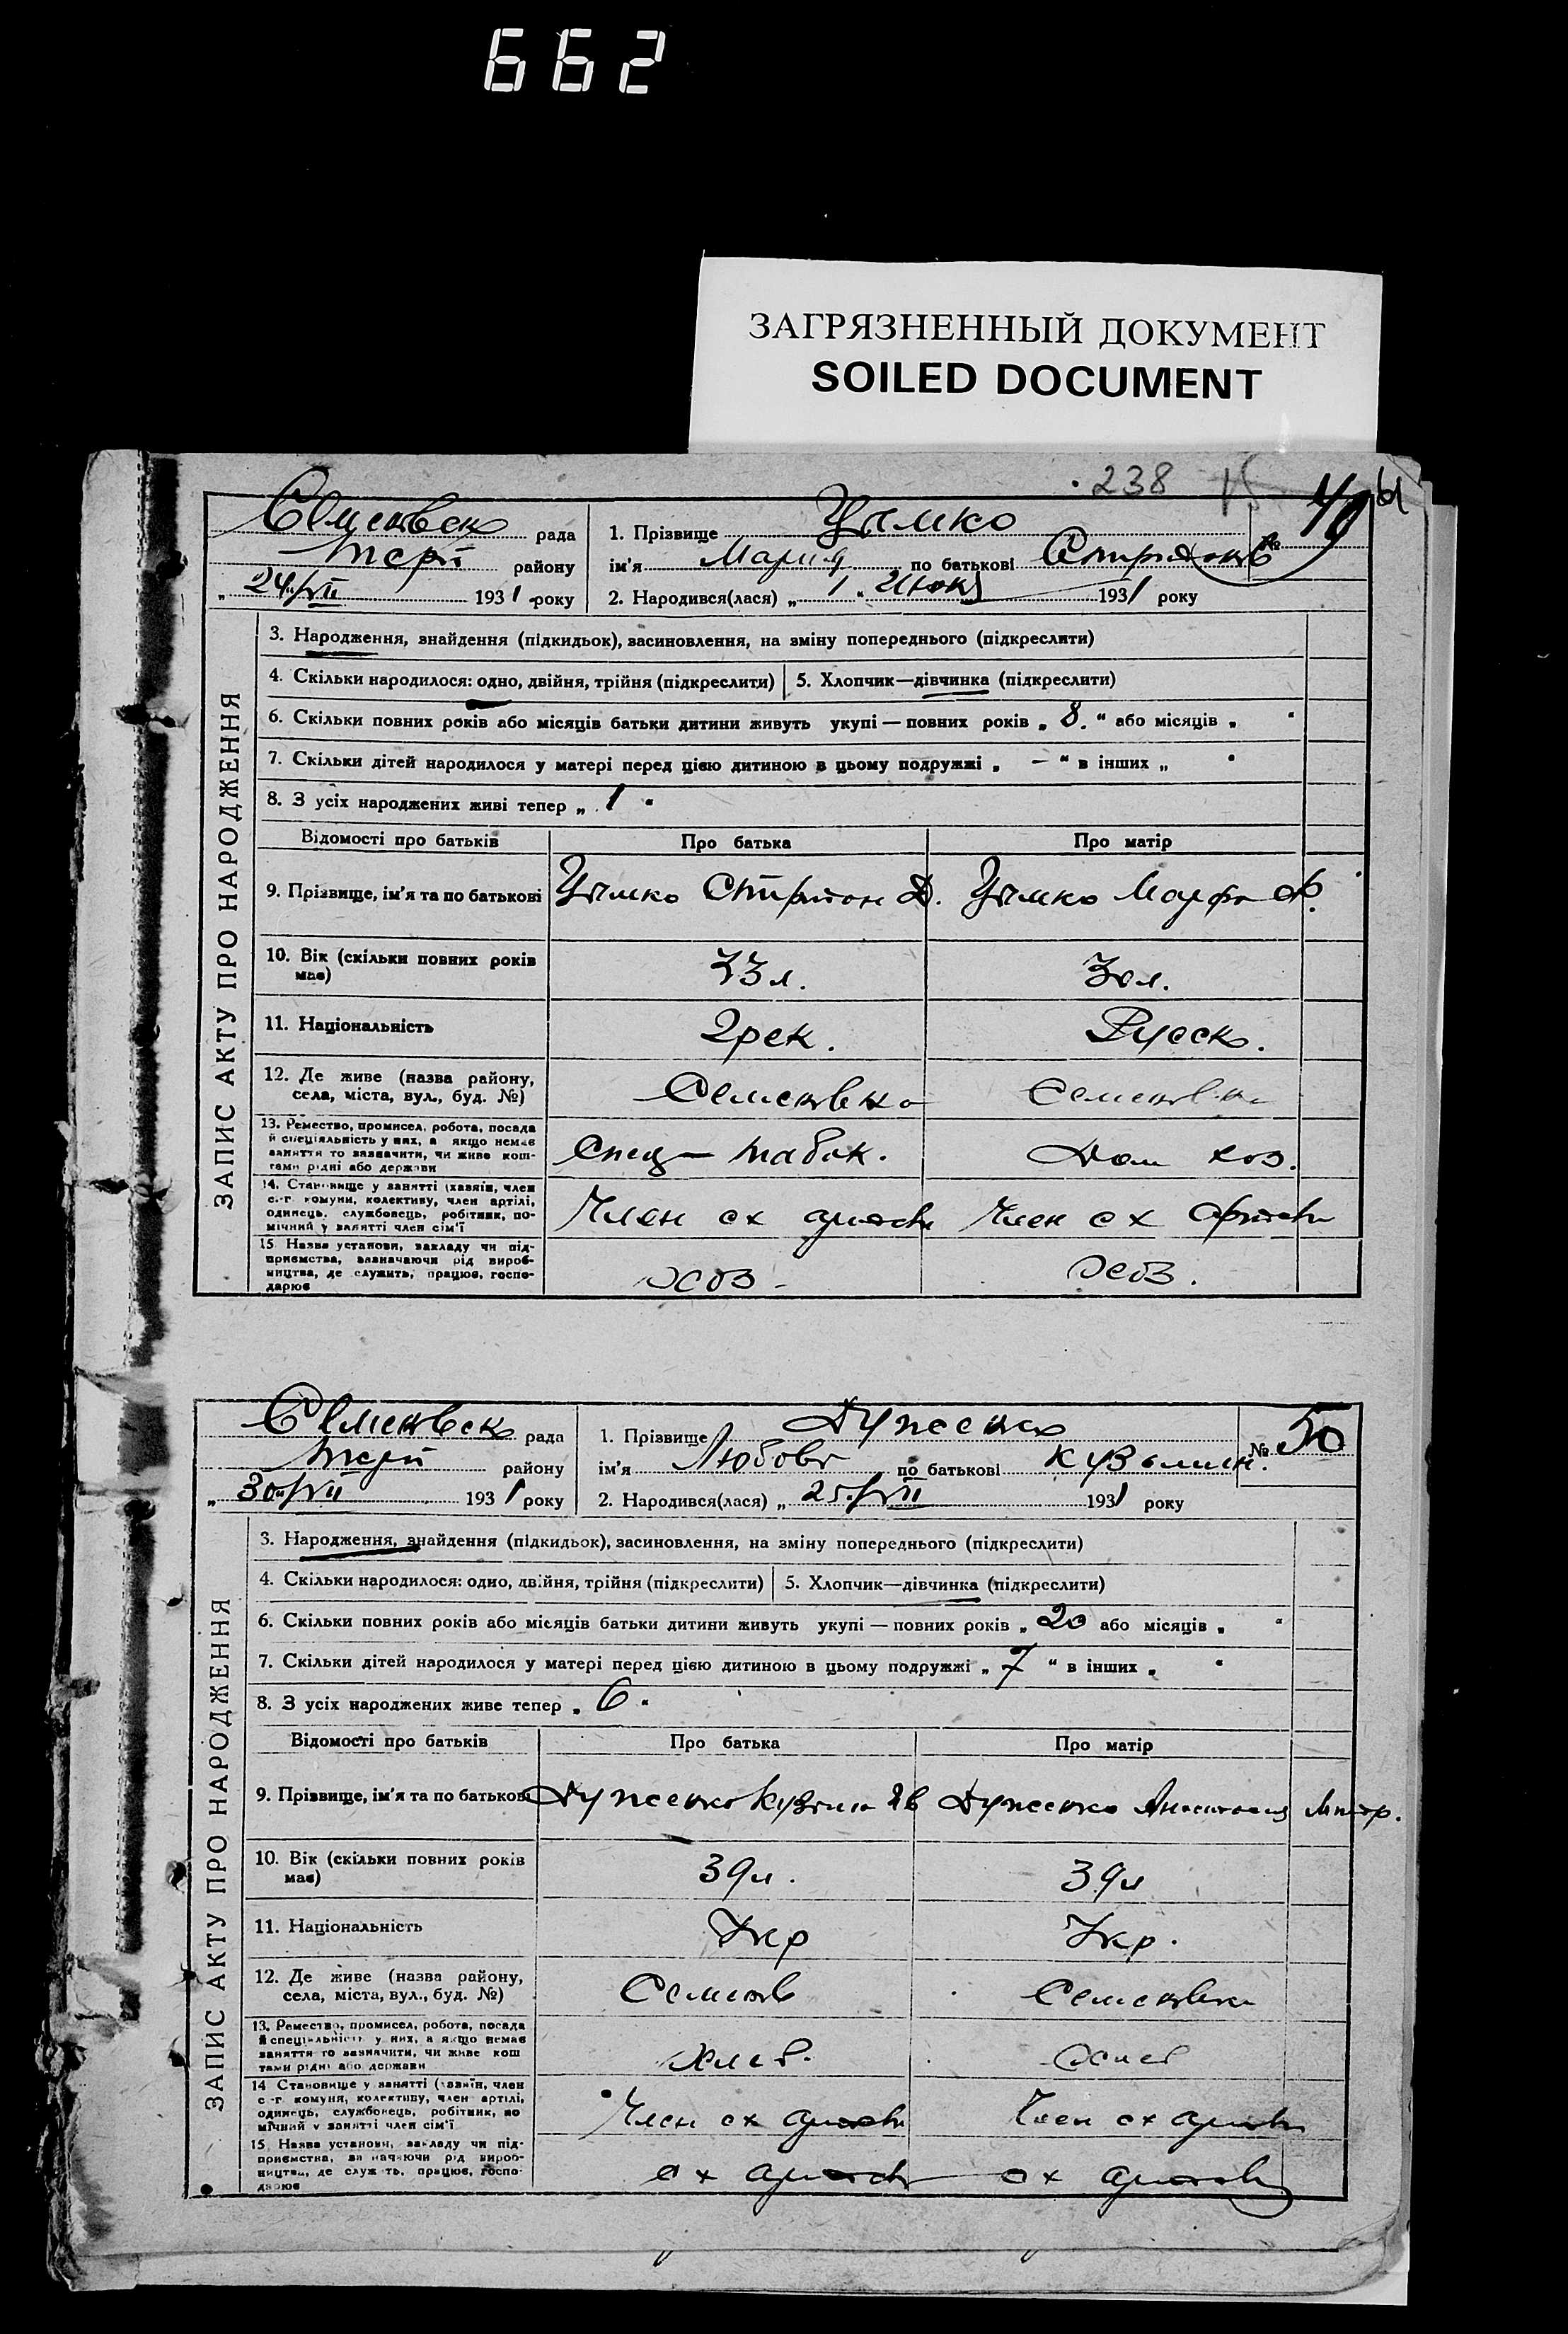 662
ЗАГРЯЗНЕННЫЙ ДОКУМЕНТ
SOILED DOCUMENT
238
49
рада
району
„ 24/VII 1931 року
1. Прізвище Цымко
ім'я Мария по батькові
2. Народився(лася) „ 1 “ 1931 року
ЗАПИС АКТУ ПРО НАРОДЖЕННЯ
3. Народження, знайдення (підкидьок), засиновлення, на зміну попереднього (підкреслити)
4. Скільки народилося: одно, двійня, трійня (підкреслити) 5. Хлопчик—дівчинка (підкреслити)
6. Скільки повних років або місяців батьки дитини живуть укупі — повних років „ 8. “ або місяців „ “
7. Скільки дітей народилося у матері перед цією дитиною в цьому подружжі „ — “ в інших „ “
8. З усіх народжених живі тепер „ 1 “
Відомості про батьків Про батька Про матір
9. Прізвище, ім'я та по батькові Цымко Д. Цымко Марфа Ф.
10. Вік (скільки повних років має) 33 л. 30 л.
11. Національність Грек. Русск.
12. Де живе (назва району, села, міста, вул., буд. №) Семеновка Семеновка
13. Ремество, промисел, робота, посада й спеціяльність у них, а якщо немає заняття то зазначити, чи живе коштами рідні або держави Спец — табак. Дом хоз.
14. Становище у занятті (хазяїн, член с.-г. комуни, колективу, член артілі, одинець, службовець, робітник, помічний у занятті член сім'ї Член сх Член сх
15. Назва установи, закладу чи підприємства, зазначаючи рід виробництва, де служить, працює, господарює
рада
району
„ 30/VII 1931 року
1. Прізвище
ім'я Любовь по батькові Кузьмин.
2. Народився(лася) „ 25/VII 1931 року
№ 50
ЗАПИС АКТУ ПРО НАРОДЖЕННЯ
3. Народження, знайдення (підкидьок), засиновлення, на зміну попереднього (підкреслити)
4. Скільки народилося: одно, двійня, трійня (підкреслити) 5. Хлопчик—дівчинка (підкреслити)
6. Скільки повних років або місяців батьки дитини живуть укупі — повних років „ 20 або місяців „ “
7. Скільки дітей народилося у матері перед цією дитиною в цьому подружжі „ 7 “ в інших „ “
8. З усіх народжених живе тепер „ 6 “
Відомості про батьків Про батька Про матір
9. Прізвище, ім'я та по батькові
10. Вік (скільки повних років має) 39 л. 39 л
11. Національність Укр Укр.
12. Де живе (назва району, села, міста, вул., буд. №) Семенов Семеновка
13. Ремество, промисел, робота, посада й спеціяльність у них, а якщо немає заняття то зазначити, чи живе коштами рідні або держави
14 Становище у занятті (хазяїн, член с.-г. комуни, колективу, член артілі, одинець, службовець, робітник, помічний у занятті член сім'ї Член сх Член сх
15 Назва установи, закладу чи підприємства, зазначаючи рід виробництва, де служить, працює, господарює сх сх